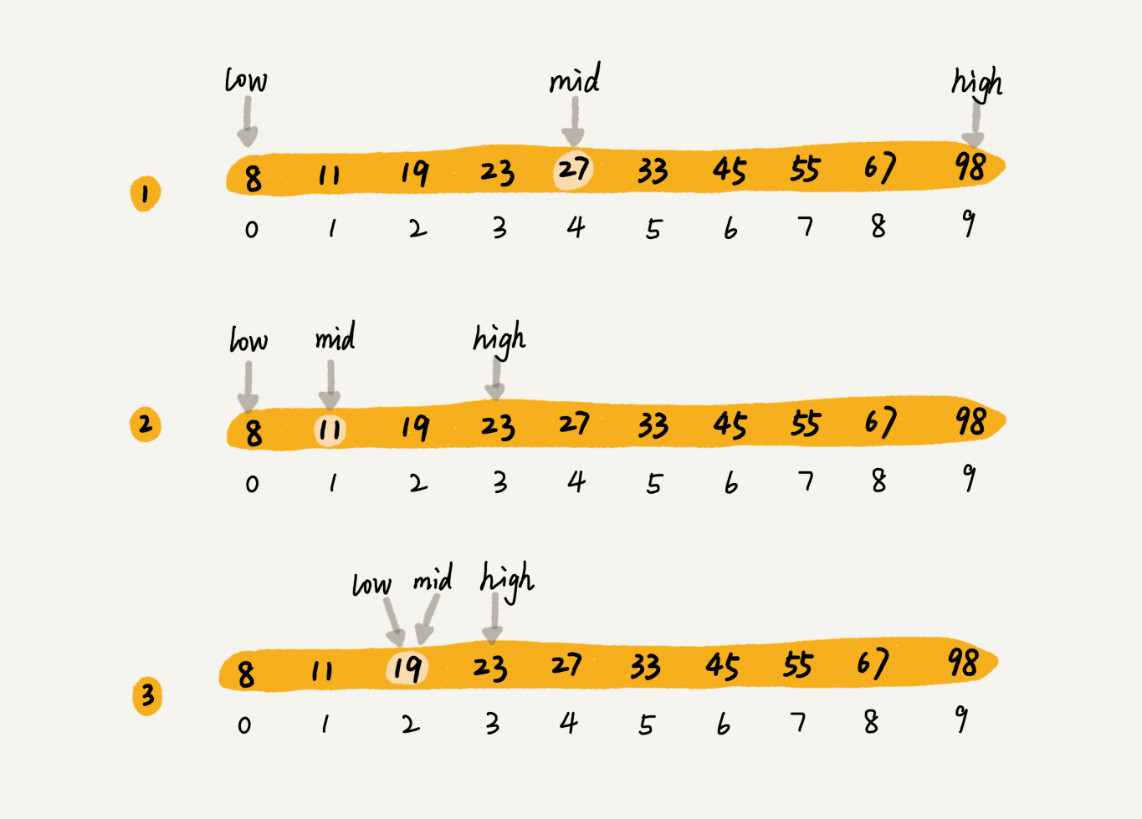 low mid high
1 8 11 19 23 27 33 45 55 67 98
0 1 2 3 4 5 6 7 8 9
low mid high
2 8 11 19 23 27 33 45 55 67 98
0 1 2 3 4 5 6 7 8 9
low mid high
3 8 11 19 23 27 33 45 55 67 98
0 1 2 3 4 5 6 7 8 9